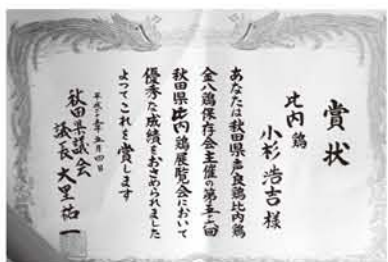 賞状
比内鶏
小杉浩吉様
あなたは秋田県声良鶏比内鶏
金八鶏保存会主催の第五十二回
秋田県比内鶏展覧会において
優秀な成績をおさめられました
よってこれを賞します
秋田県議会
議長大里祐一